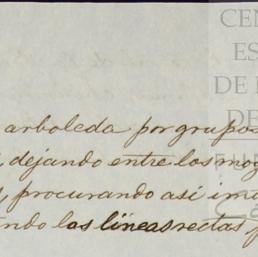 CEN
ES
DE
DE
arboleda por grupos
, dejando entre los mog
, procurando así im
ndo las líneas rectas